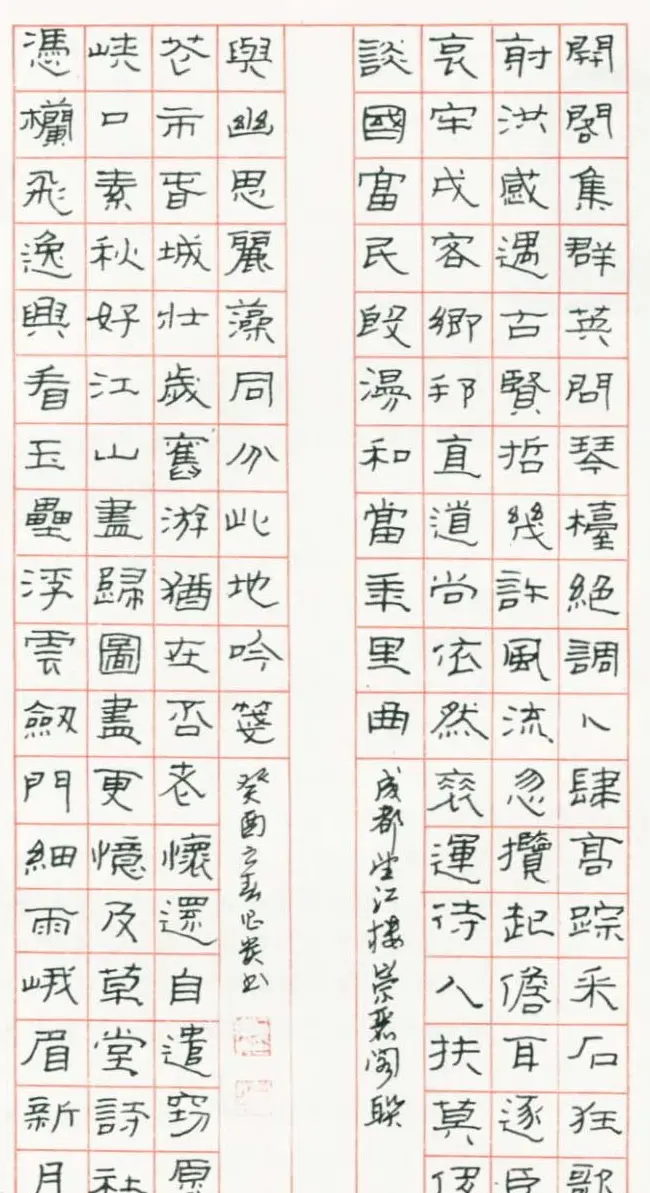 開閣集群英問琴檯絕調卜肆高踪采石狂歌
射洪感遇古賢哲幾許風流忽攬起儋耳逐臣
哀牢戍客鄉邦直道尚依然衰運待人扶莫侈
談國富民殷漫和當秊里曲
成都望江樓崇麗閣聯
憑欄飛逸興看玉壘浮雲劍門細雨峨眉新月
峽口素秋好江山盡歸圖畫更憶及草堂詩社
花市春城壯歲舊游猶在否老懷還自遣窃原
與幽思麗藻同分此地吟箋
癸酉立春書